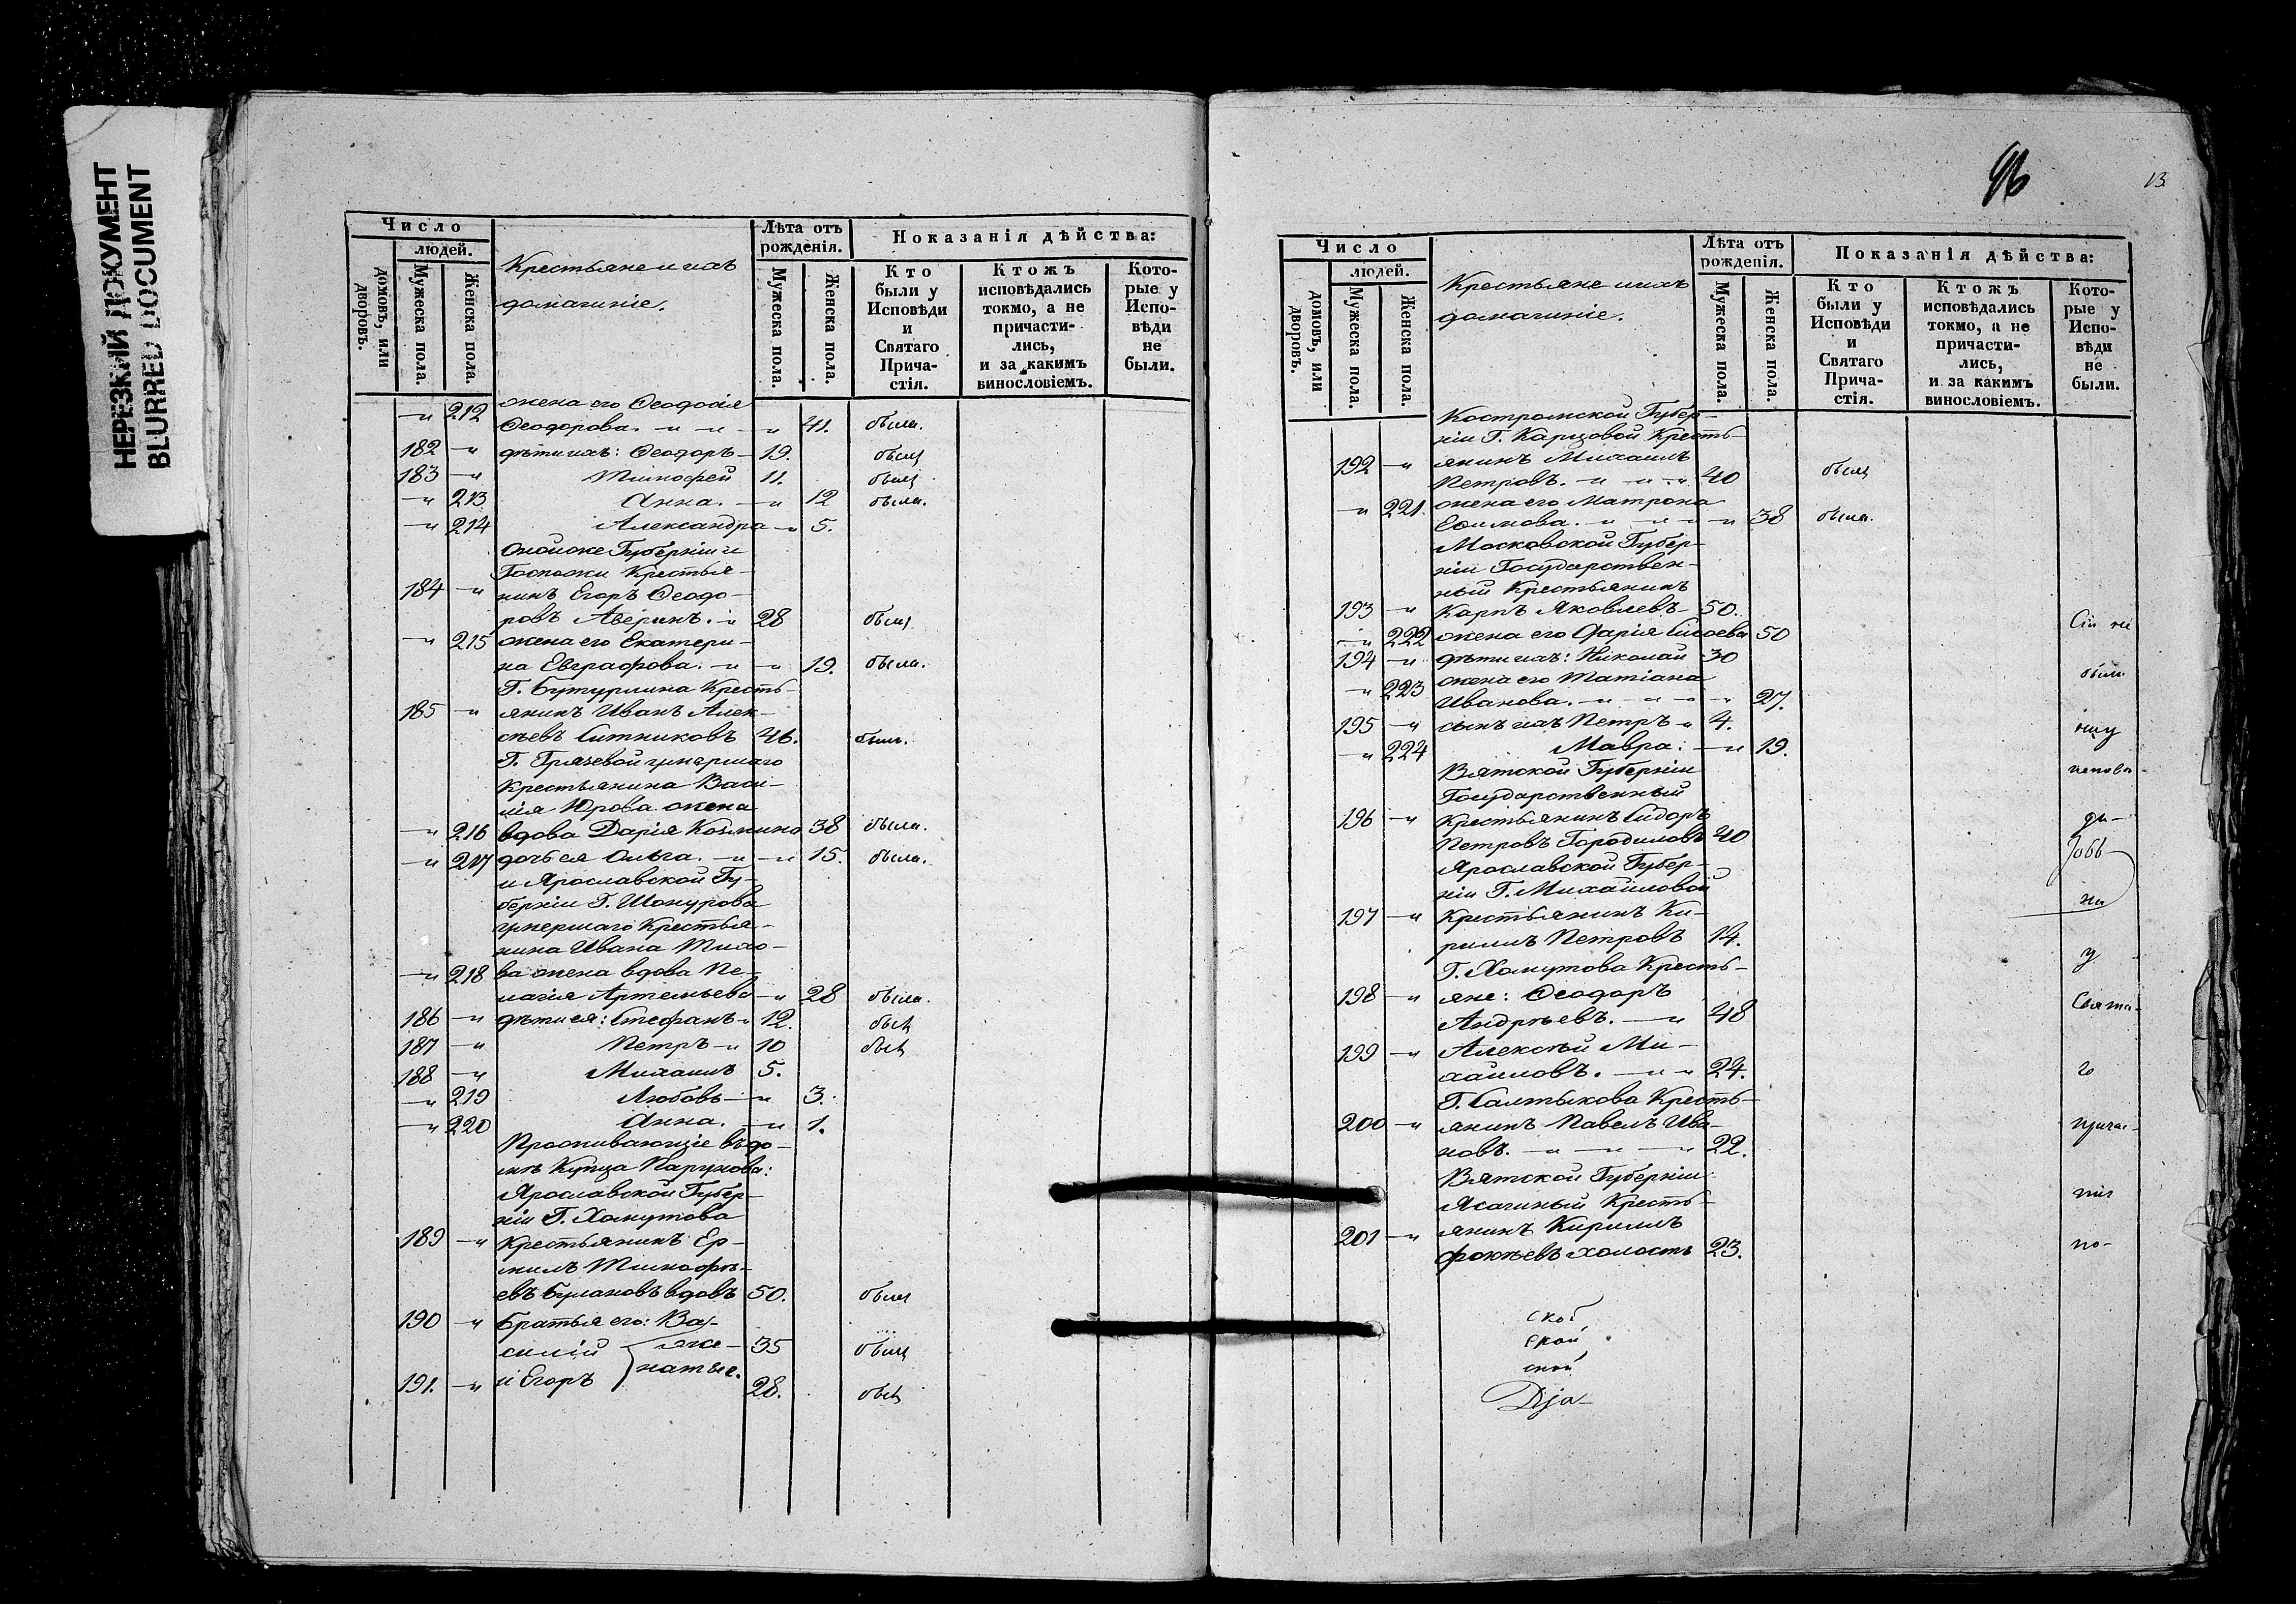 НЕРЕЗКИЙ ДОКУМЕНТ
BLURRED DOCUMENT
Число
людей.
домовъ, или дворовъ.
Мужеска пола.
Женска пола.
Крестьяне и ихъ
домашніе.
Лѣта отъ
рожденія.
Мужеска пола.
Женска пола.
Показанія дѣйства:
Кто были у Исповѣди и Святаго Прича-стія.
Ктожъ исповѣдались токмо, а не причасти-лись, и за какимъ винословіемъ.
Кото-рые у Испо-вѣди не были.
212 жена его Ѳеодосія
Ѳеодорова. 41. была.
182 дѣти ихъ: Ѳеодоръ 19. былъ
183 Тимофей 11. былъ
213 Анна. 12 была.
214 Александра 5.
Оной же Губерніи и
Госпожи Крестья-
184 нинъ Егоръ Ѳеодо-
ровъ Аверинъ. 28 былъ
215 жена его Екатери-
на Евграфова. 19. была.
Г. Бутурлина Кресть-
185 янинъ Иванъ Алек-
сѣевъ Ситниковъ 46. былъ.
Г. Грязевой умершаго
Крестьянина Васи-
лія Юрова жена
216 вдова Дарія Козмина 38 была.
217 дочь ея Ольга. 15. была.
и Ярославской Гу-
берніи Г. Шонурова
умершаго Крестья-
нина Ивана Тихо-
218 ва жена вдова Пе-
лагія Артемьева 28 была.
186 дѣти ея: Стефанъ 12. былъ
187 Петръ 10 былъ
188 Михаилъ 5.
219 Любовь 3.
220 Анна. 1.
Проживающіе въ до-
мѣ Купца Парунова:
Ярославской Губер-
ніи Г. Хомутова
189 Крестьянинъ Ер-
милъ Тимофѣ-
евъ Булановъ вдовъ 50. былъ
190 Братья его: Ва-
силій жe- 35 былъ
191. и Егоръ натые. 28. былъ
96
13
Число
людей.
домовъ, или дворовъ.
Мужеска пола.
Женска пола.
Крестьяне и ихъ
домашніе.
Лѣта отъ
рожденія.
Мужеска пола.
Женска пола.
Показанія дѣйства:
Кто были у Исповѣди и Святаго Прича-стія.
Ктожъ исповѣдались токмо, а не причасти-лись, и за какимъ винословіемъ.
Кото-рые у Испо-вѣди не были.
Костромской Губер-
ніи Г. Карцовой Кресть-
192 янинъ Михаилъ
Петровъ. 40 былъ
221. жена его Матрона
Ефимова. 38 была.
Московской Губер-
ніи Государствен-
ный Крестьянинъ
193 Карпъ Яковлевъ 50.
222 жена его Дарія Сысоева 50
194 дѣти ихъ: Николай 30
223 жена его Татіана
Иванова. 27.
195 сынъ ихъ Петръ 4.
224 Мавра. 19.
Вятской Губерніи
Государственный
196 Крестьянинъ Сидоръ
Петровъ Городиловъ 40
Ярославской Губер-
ніи Г. Михайловой
197 Крестьянинъ Ки-
рилъ Петровъ 14.
Г. Хомутова Кресть-
198 яне: Ѳеодоръ
Андрѣевъ. 48
199 Алексѣй Ми-
хайловъ. 24.
Г. Салтыкова Кресть-
200 янинъ Павелъ Ива-
новъ. 22.
Вятской Губерніи
Ясачный Кресть-
201 янинъ Кириллъ
Фокѣевъ холостъ 23.
Сіи не
были
ни у
исповѣ-
ди
на
у
Свята-
го
причас-
тія
по-